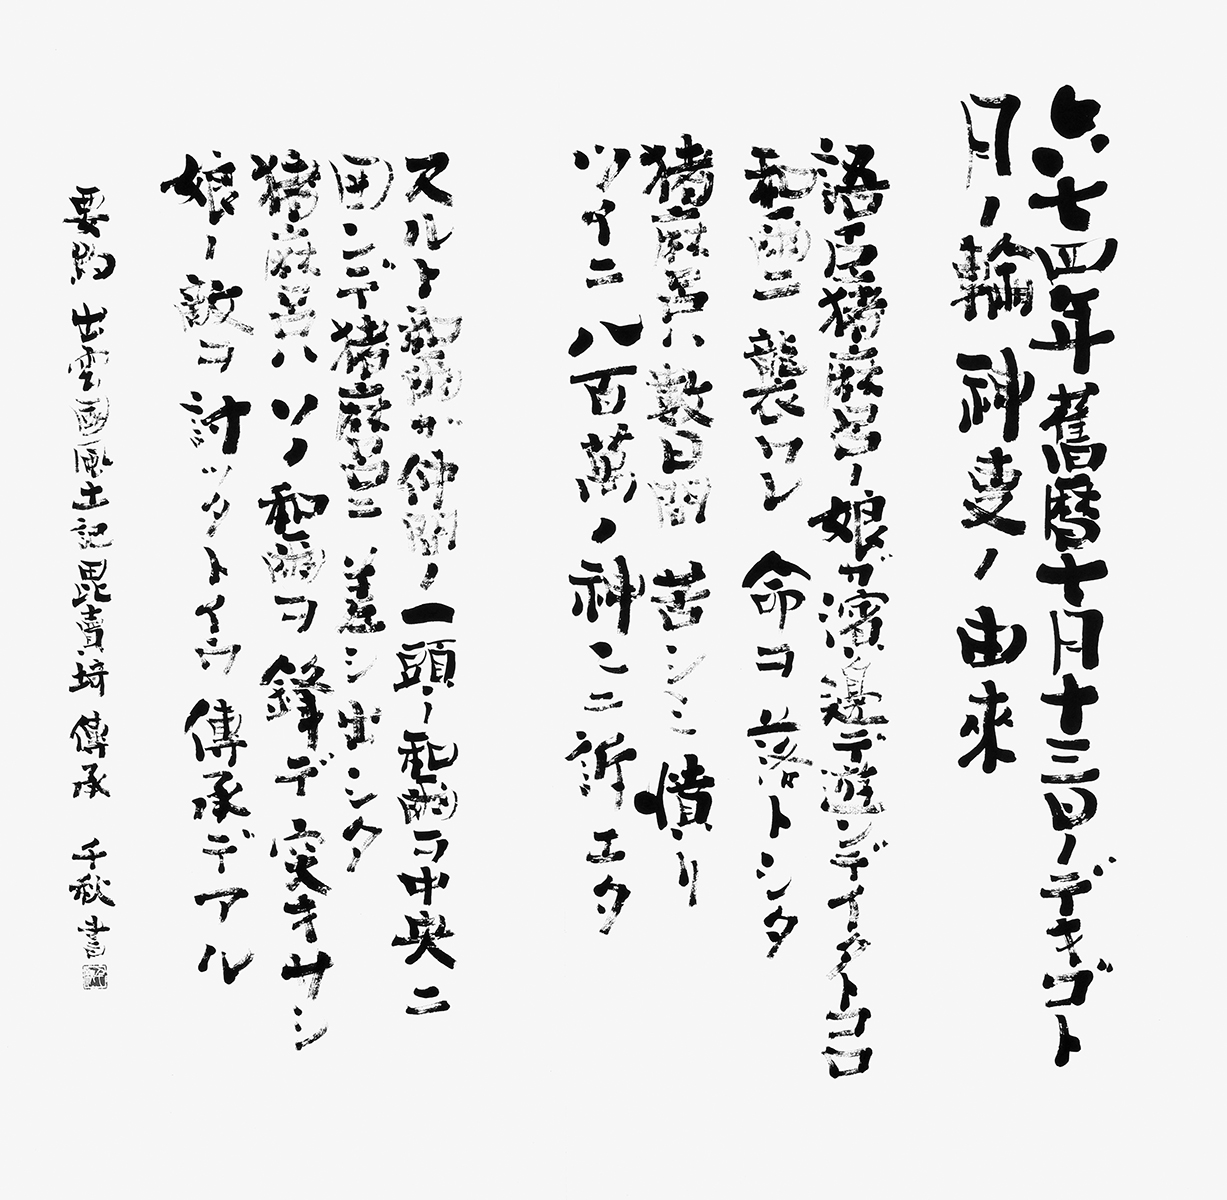 六七四年舊暦七月十三日ノデキゴト
月ノ輪 神事ノ由來
語臣猪麻呂ノ娘ガ濱邊デ遊ンデイタトコロ
和爾ニ襲ワレ 命ヲ落トシタ
猪麻呂ハ数日間 苦シミ 憤リ
ツイニ 八百萬ノ神々ニ訴エタ
スルト和爾ガ仲間ノ一頭ノ和爾ヲ中央ニ
囲ンデ猪麻呂ニ 差シ出シタ
猪麻呂ハ ソノ和爾ヲ 鋒デ 突キサシ
娘ノ敵ヲ討ッタトイウ 傳承デアル
要約 出雲國風土記毘賣埼 傳承 千秋書